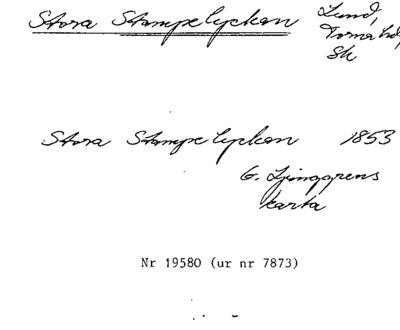 Stora Stampelyckan Lund,
Torna hd,
Sk
Stora Stampelyckan 1853
G. Ljunggrens
karta
Nr 19580 (ur nr 7873)